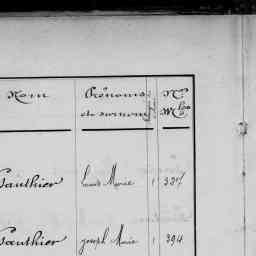 Nom Prénoms et surnom N.o Mles
Gauthier Louis Marie 1 337
Gauthier joseph Marie 1 394